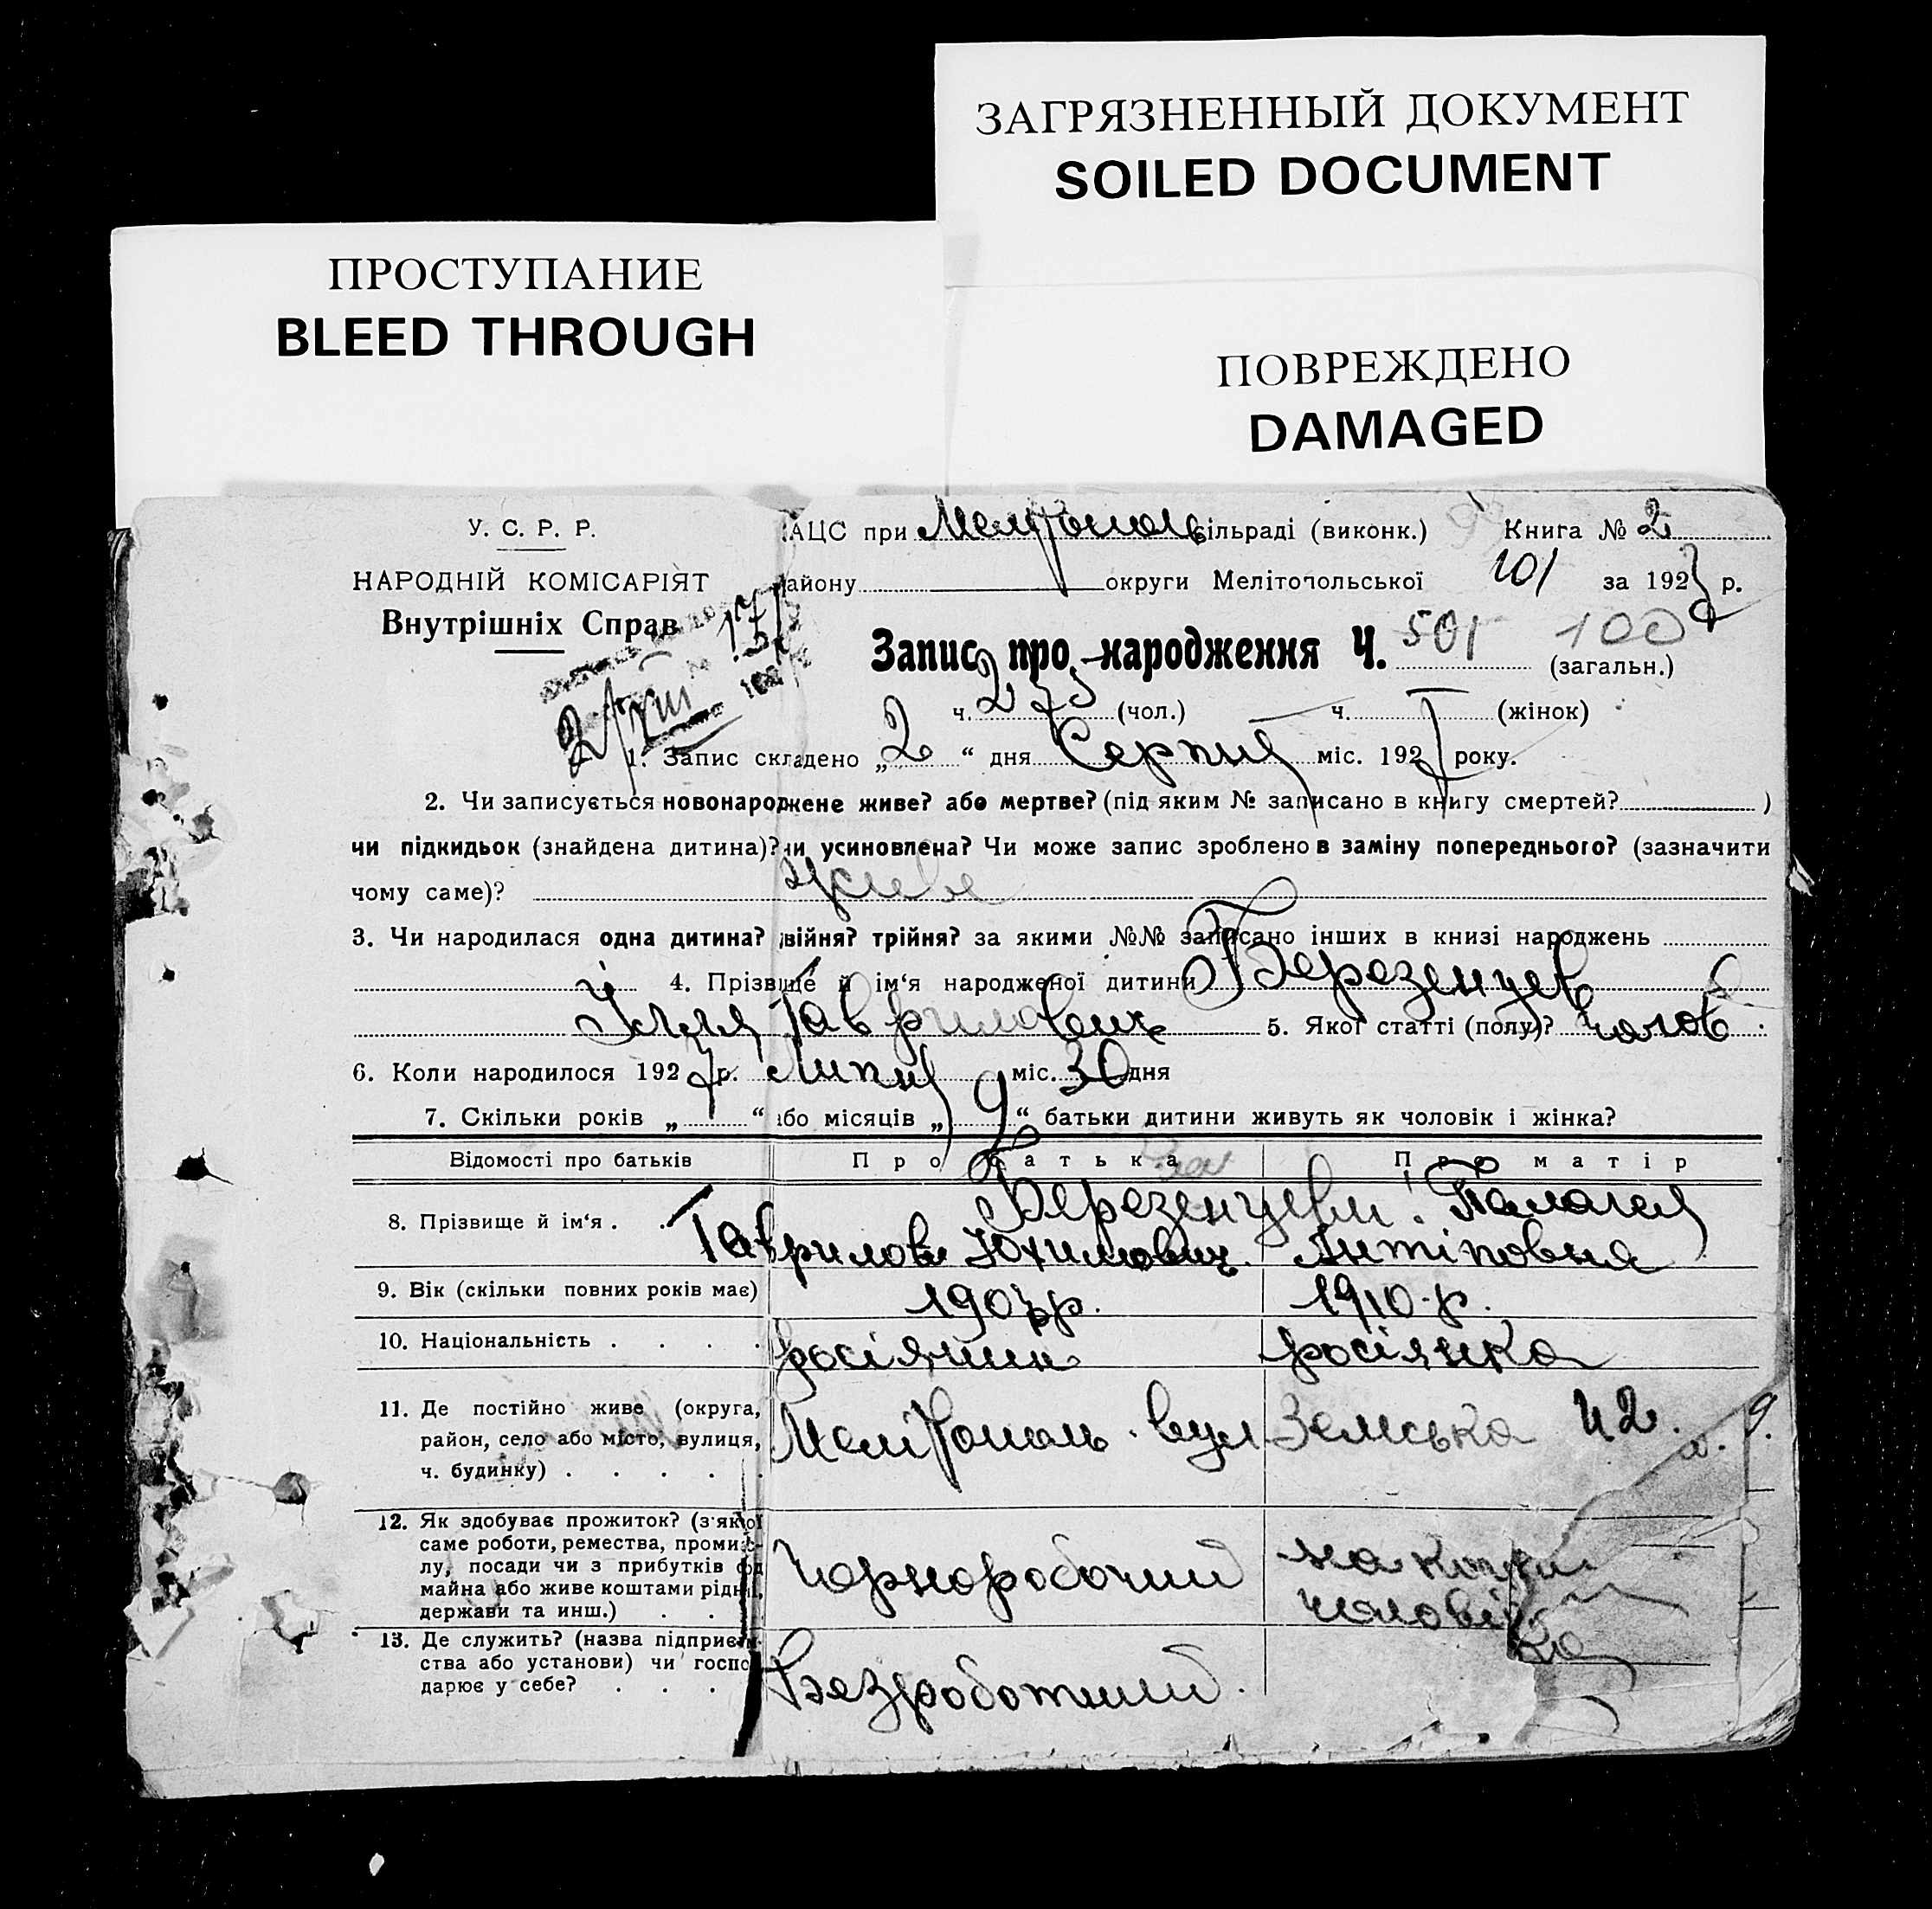 ЗАГРЯЗНЕННЫЙ ДОКУМЕНТ
SOILED DOCUMENT
ПРОСТУПАНИЕ
BLEED THROUGH
ПОВРЕЖДЕНО
DAMAGED
У. С. Р. Р.
НАРОДНІЙ КОМІСАРІЯТ
Внутрішніх Справ
АЦС при Мелітополь сільраді (виконк.) Книга № 2
айону округи Мелітопольської 101 за 1927 р.
Запис про народження Ч. 501 100
(загальн.)
ч. 273 (чол.) ч. (жінок)
2/VIII
1. Запис складено „2“ дня Серпня міс. 1927 року.
2. Чи записується новонароджене живе? або мертве? (під яким № записано в книгу смертей? )
чи підкидьок (знайдена дитина)? чи усиновлена? Чи може запис зроблено в заміну попереднього? (зазначити
чому саме)? живе
3. Чи народилася одна дитина? двійня? трійня? за якими №№ записано інших в книзі народжень
4. Прізвище й ім‘я народженої дитини Березенцев
Ілля Гаврилович 5. Якої статті (полу)? чолов.
6. Коли народилося 1927 р. Липня міс. 30 дня
7. Скільки років „ “ або місяців „9“ батьки дитини живуть як чоловік і жінка?
Відомості про батьків Про батька Про матір
8. Прізвище й ім‘я . . Березенцеви: Палагея
Гаврилов Юхимович. Антіповна
9. Вік (скільки повних років має) 1907р. 1910.р.
10. Національність . . . . росіянин росіянка
11. Де постійно живе (округа,
район, село або місто, вулиця,
ч. будинку) . . . . .
Мелітополь. вул. Земська Ч 2.
12. Як здобуває прожиток? (з якої
саме роботи, ремества, промис-
лу, посади чи з прибутків від
майна або живе коштами рідні,
держави та инш.) . . .
Чорноробочий на кошти
чоловіка
13. Де служить? (назва підприєм-
ства або установи) чи госпо-
дарює у себе? . . .
Безработний.